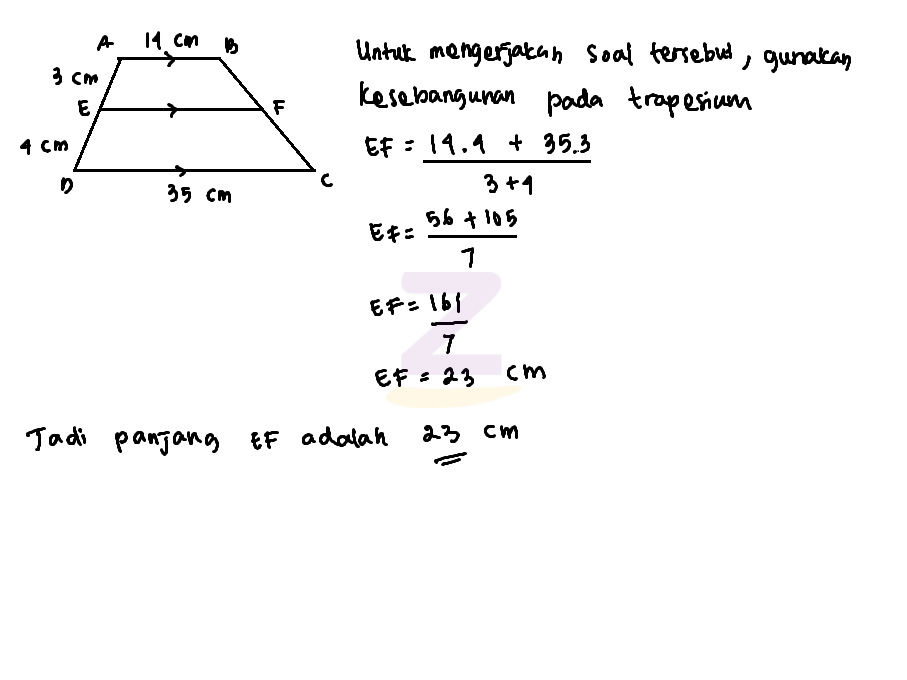 A 14 cm B
3 cm
E F
4 cm
D C
35 cm
Untuk mengerjakan soal tersebut, gunakan
kesebangunan pada trapesium
EF = 14.4 + 35.3
3+4
EF = 56 + 105
7
EF = 161
7
EF = 23 cm
Jadi panjang EF adalah 23 cm
Z